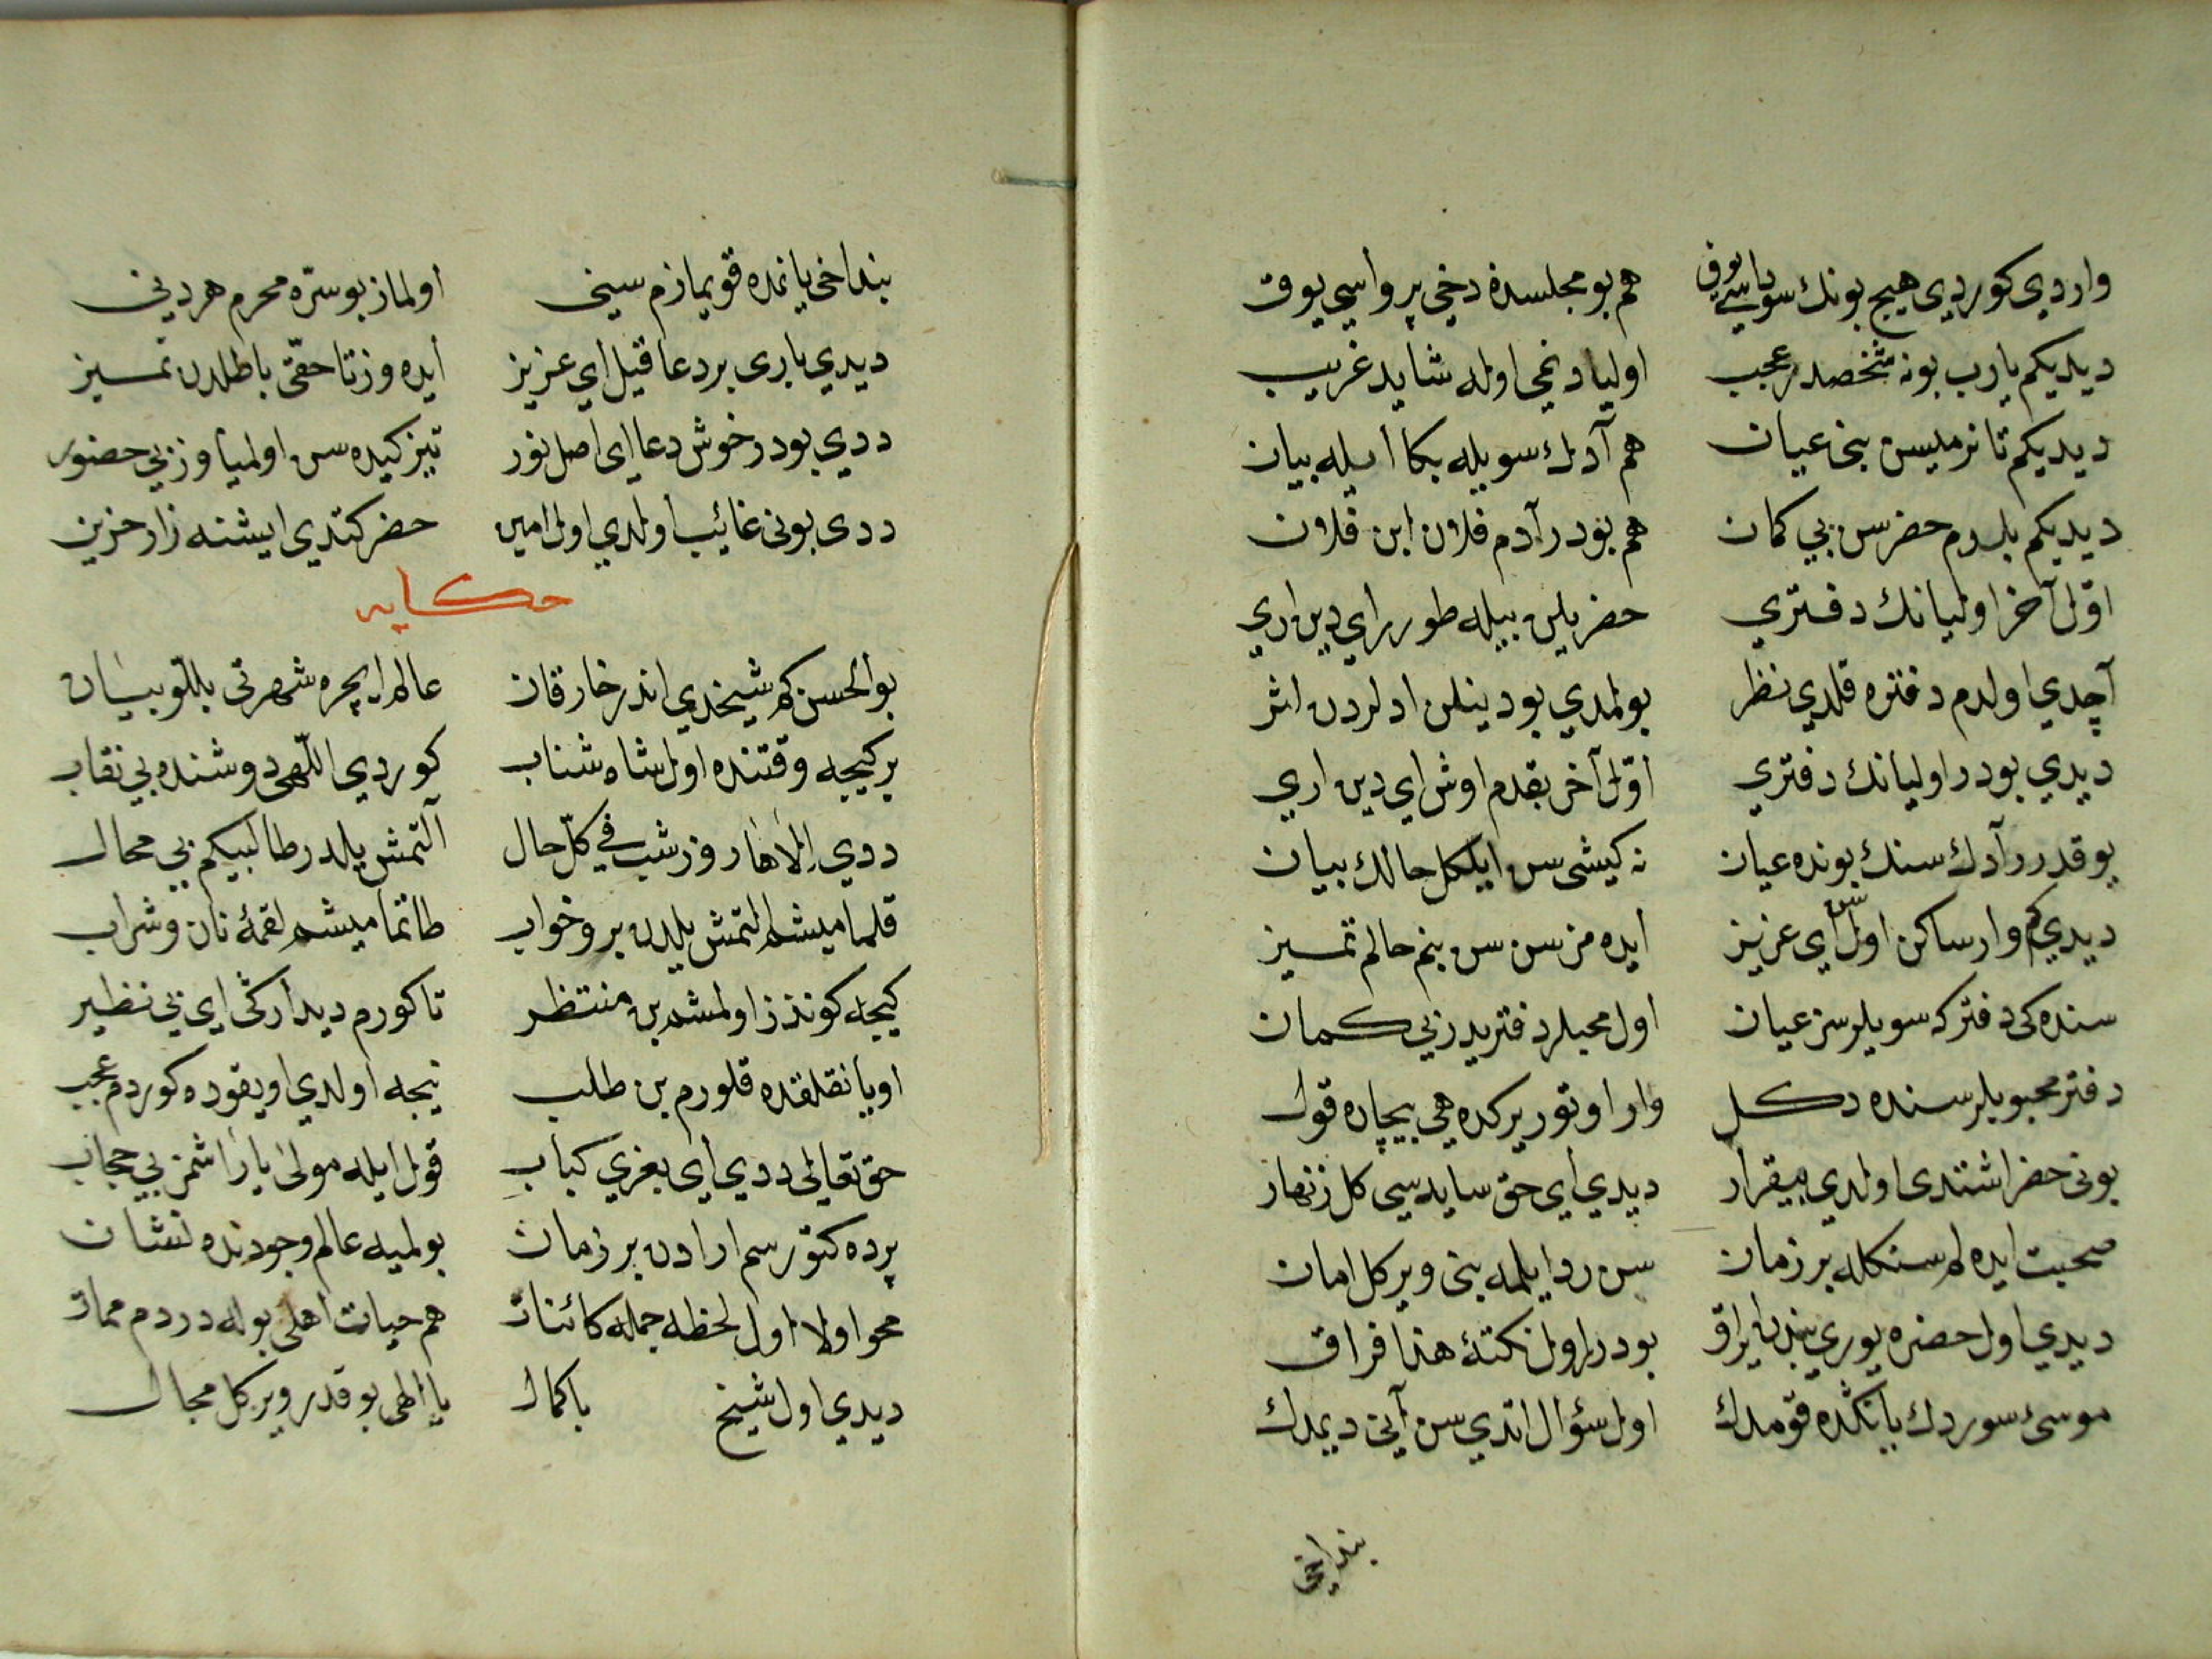 واردي كوردي هيچ بونك سوياسي يوق هم بو مجلسده دخي پرواسي يوق
ديديكم يارب بونه شخصدر عجب اوليا دخي اوله شايد غريب
ديديكم تانرميسن بني عيان هم آدك سويله بكا ايله بيان
ديديكم بلدم حضرسن بي كمان هم بنودر آدم فلان ابن فلان
اوّل آخر اوليانك دفتري حضر بلن بيله طورر اي دين اري
آچدي اولدم دفتره قلدي نظر بولمدي بو دينلن ادلردن اثر
ديدي بودر اوليانك دفتري اوّل آخر بقدم اوش اي دين اري
يوقدرر آدك سنك بونده عيان نه كيشي سن ايلكل حالك بيان
ديدي كم وار ساكن اول سن اي عزيز ايده مزسن سن بنم حالم تميز
سنده كي دفتر كه سويلرسن عيان اول محبلر دفتريدر بي كمان
دفتر محبوبلر سنده دكل وار اوتور يركده هي بيچاره قول
بوني حضر اشتدي اولدي بيقرار ديدي اي حق سايه سي كل زنهار
صحبت ايده لم سنكله بر زمان سن رد ايلمه بني ويركل امان
ديدي اول حضره يوري بندن ايراق بودر اول نكتهٔ هذا فراق
موسئ سوردك يانكده قومدك اول سؤال اتدي سن آني ديمدك
بنداخي
بنداخي يانمده قويمازم سيني اولماز بو سرّه محرم هر دني
ديدي باري بر دعا قيل اي عزيز ايده وز تا حقّي باطلدن تميز
ددي بودر خوش دعا اي اصل نور تيز كيده سن اولميا وز بي حضور
ددي بوني غائب اولدي اول امين حضر كتدي ايشنه زار حزين
حكايه
بو الحسن كم شيخدي اندر خارقان عالم ايچره شهرتي بللو بيان
بر كيجه وقتنده اول شاه شناب كوردي اللّهي دوشنده بي نقاب
ددي الاها روز شب في كلّ حال آلتمش يلدر طالبيكم بي محال
قلماميشم التمش يلدن برو خواب طاتماميشم لقمهٔ نان و شراب
كيجه كوندز اولمشم بن منتظر تا كورم ديدار كي اي بي نظير
اويانقلقده قلورم بن طلب نيجه اولدي اويقوده كوردم عجب
حق تعالي ددي اي بغري كباب قول ايله مولي ياراشمز بي حجاب
پرده كتورسم ارادن بر زمان بولميه عالم وجودنده نشان
محو اولا اول لحظه جمله كائنات هم حيات اهلي بوله دردم ممات
ديدي اول شيخ باكمال يا الهي بو قدر ويركل مجال